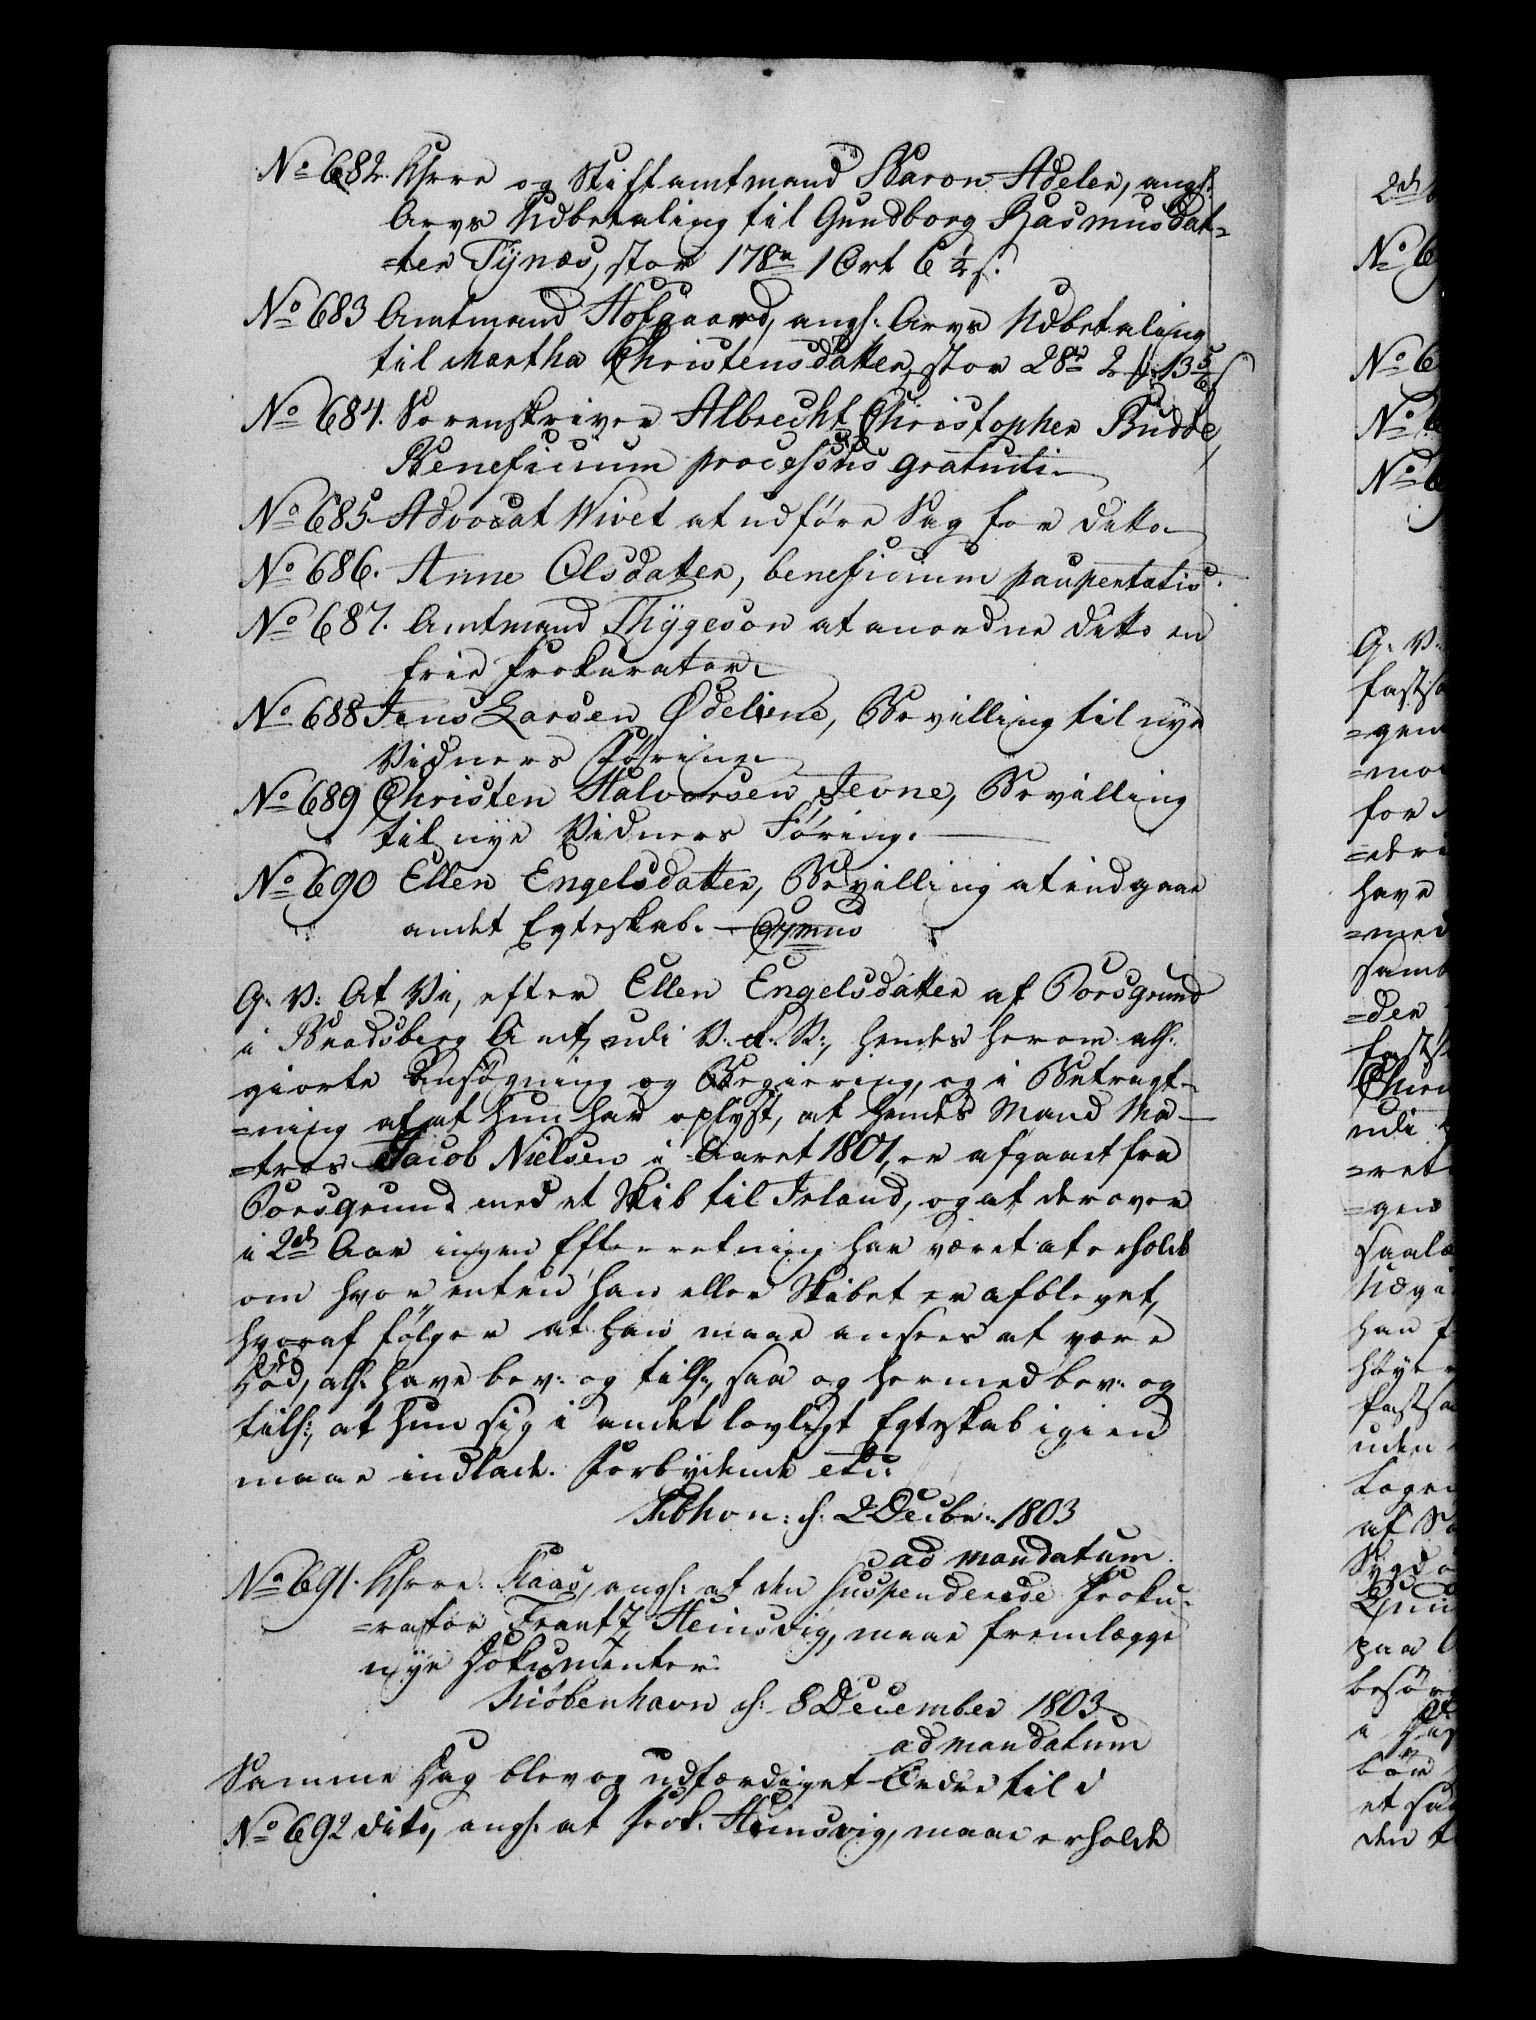 No 682. Khrre og Stiftamtmand Baron Adeler, angl:
Arvs Udbetaling til Gundborg Rasmusdat=
=ter Tÿnæs, stor 178 rd 1 Ort 6 1/2 s.
No 683 Amtmand Hofgaard, angl: Arvs Udbetaling
til Martha Christensdatter, stor 28 rd 2 13 5/6 s
No 684. Sorenskriver Albrecht Christopher Budde,
Beneficium processus gratuiti.
No 685 Advocat Wivet at udføre Sag for ditto
No 686. Anne Olsdatter, beneficium paupertatis.
No 687. Amtmand Thÿgeson at anordne ditto en
frie Prokurator.
No 688 Jens Larsen Ødeliene, Bevilling til nye
Vidners Føring.
No 689 Christen Halvorsen Jevne, Bevilling
til nye Vidners Føring.
No 690 Ellen Engelsdatter, Bevilling at indgaae
andet Egteskab.
G: V: At Vi, efter Ellen Engelsdatter af Porsgrund
i Bradsberg Amt, udi V. R. N:, hendes herom alh:
giorte Ansøgning og Begiering, og i Betragt=
=ning af at hun har oplyst, at hendes Mand Ma=
=tros Jacob Nielsen i Aaret 1801, er afgaaet fra
Porsgrund med et Skib til Irland, og at derover
i 2de Aar ingen Efterretning har været at erholde
om hvor enten han eller Skibet er afblevet,
hvoraf følger at han maae ansees at være
død, alh: have bev: og tilh:, saa og hermed bev: og
tilh:, at hun sig i andet lovligt Egteskab igien
maae indlade. Forbydende etc:
Kbhvn: d: 2 Decbr: 1803
ad mandatum.
No 691. Khrre: Kaas, angl: at den suspenderede Proku=
=rator Frantz Heinsvig, maae fremlægge
nye Dokumenter.
Kiøbenhavn d: 8 December 1803
ad mandatum
Samme Dag blev og udfærdiget Ordre til
No 692 dito, angl: at Prok: Heinsvig, maae erholde